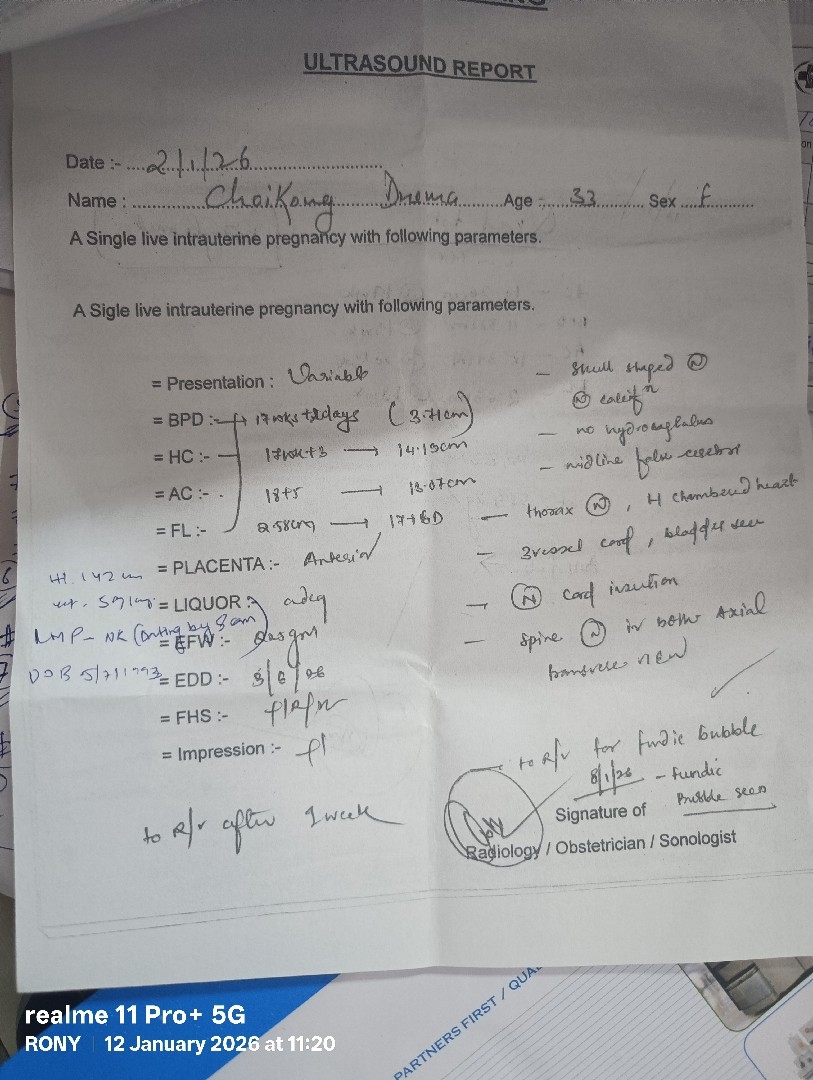 ULTRASOUND REPORT
Date :- 2/1/26
Name : Chaikamg Drema Age :- 33 Sex F
A Single live intrauterine pregnancy with following parameters.
A Sigle live intrauterine pregnancy with following parameters.
= Presentation : Variable
= BPD :- 17wks + days (3.71cm)
= HC :- 17wk+3 → 14.19cm
= AC :- 18+5 → 13.07cm
= FL :- 2.58cm → 17+6D
= PLACENTA :- Anterior
Ht. 142 cm
= LIQUOR :- adeq
wt.
LMP - NK (Dating by Scan)
= EFW :- gm
DOB 5/7/1993
= EDD :- 8/6/26
= FHS :-
= Impression :-
to R/v after 1 week
- skull shaped (N)
(N) calcifn
- no
- midline falx cerebri
- thorax (N), 4 chambered heart
- 3 vessel cord, bladder seen
- (N) cord insertion
- spine (N) in both axial
transverse view
- to R/v for fundic bubble
8/1/26 - fundic
Bubble seen
Signature of
Radiology / Obstetrician / Sonologist
PARTNERS FIRST / QUA
realme 11 Pro+ 5G
RONY | 12 January 2026 at 11:20